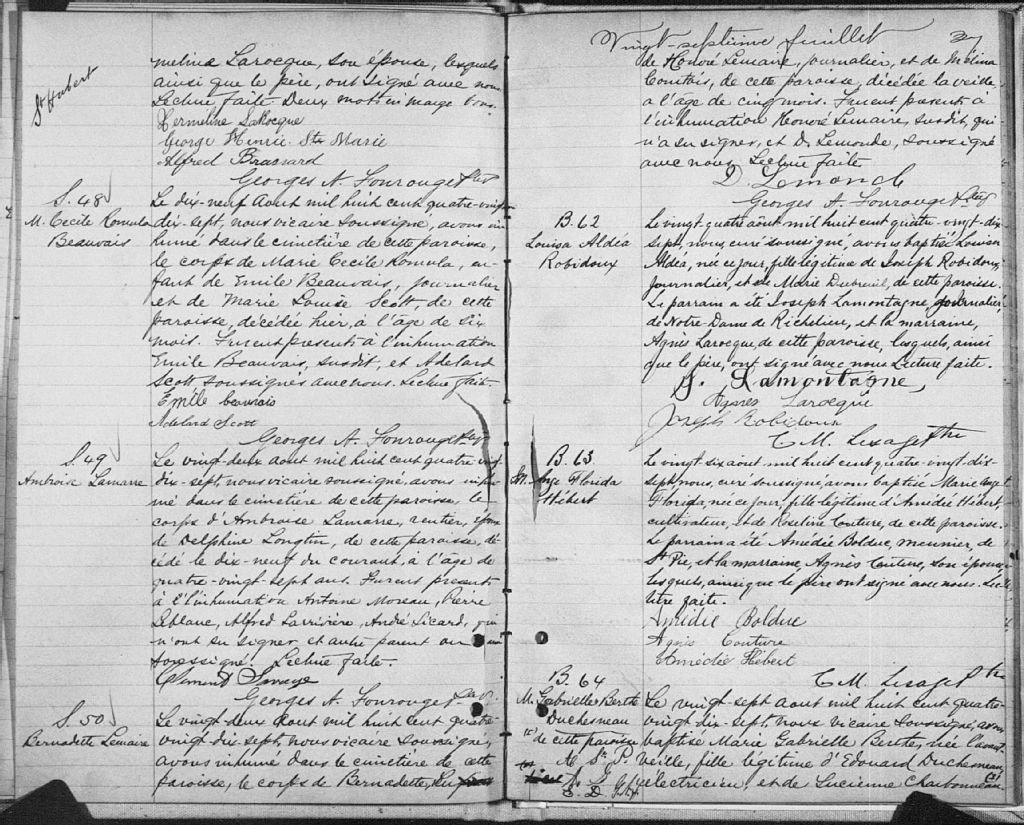 St Hubert
melina Larocque, son épouse, lesquels
ainsi que le père, ont signé avec nous
Lecture faite. Deux mots en marge bons.
Hermeline LaRocque
George Henrie Ste Marie
Alfred Brassard
Georges A. Fourouge Ptre
S. 48
M. Cecile Romula
Beauvais
Le dix-neuf Aout mil huit cent quatre-vingt
dix-sept, nous vicaire soussigné, avons in
humé dans le cimetière de cette paroisse,
le corps de Marie Cecile Romula, en-
fant de Emile Beauvais, journalier
et de Marie Louise Scott, de cette
paroisse, décédée hier, à l'âge de six
mois. Furent presents à l'inhumation
Emile Beauvais, susdit, et Adelard
Scott soussignés avec nous. Lecture faite
Emile beauvais
Adelard Scott
Georges A. Fourouge
S. 49
Ambroise Lamarre
Le vingt-deux aout mil huit cent quatre vingt
dix-sept, nous vicaire soussigné, avons inhu
mé dans le cimetière de cette paroisse, le
corps d'Ambroise Lamarre, rentier, époux
de Delphine Longtin, de cette paroisse, dé
cédé le dix-neuf du courant, à l'âge de
quatre-vingt-sept ans. Furent presents
à l'inhumation Antoine Moreau, Pierre
Leblanc, Alfred Larivière, André Sicard, qui
n'ont su signer et autre parent ou
soussigné. Lecture faite.
Georges A. Fourouge
S. 50
Bernadette Lemaire
Le vingt-deux Aout mil huit cent quatre-
vingt-dix-sept, nous vicaire soussigné,
avons inhumé dans le cimetière de cette
paroisse, le corps de Bernadette,
Vingt-septième feuillet
de Honoré Lemaire, journalier, et de Mélina
Courtois, de cette paroisse, décédée la veille,
a l'âge de cinq mois. Furent presents à
l'inhumation Honoré Lemaire, susdit, qui
n'a su signer, et D. Lemonde, soussigné
avec nous. Lecture faite
D Lemonde
Georges A. Fourouge Ptre
B. 62
Louisa Aldéa
Robidoux
Le vingt-quatre aôut mil huit cent quatre-vingt-dix
sept, nous, curé soussigné, avons baptisé Louisa
Aldéa, née ce jour, fille légitime de Joseph Robidoux
journalier, et de Marie Dubreuil, de cette paroisse.
Le parrain a été Joseph Lamontagne journalier,
de Notre-Dame de Richelieu, et la marraine,
Agnes Larocque, de cette paroisse, lesquels, ainsi
que le père, ont signé avec nous. Lecture faite.
J. Lamontagne
Agnes Larocque
Joseph Robidoux
C. M. Lesage Ptre
B. 63
M. Ange Florida
Hébert
Le vingt-six aôut mil huit cent quatre-vingt-dix-
sept, nous, curé soussigné, avons baptisé Marie Ange
Florida, née ce jour, fille légitime d'Amédée Hébert,
cultivateur, et de Roseline Couture, de cette paroisse.
Le parrain a été Amédée Bolduc, meunier, de
St Pie, et la marraine, Agnes Couture, son épouse,
lesquels, ainsi que le père ont signé avec nous. Lec
ture faite.
Amédée Bolduc
Agnès Couture
Amédée Hébert
C. M. Lesage Ptre
B. 64
M. Gabrielle Berthe
Duchesneau
de cette paroisse
Le vingt-sept aout mil huit cent quatre-
vingt dix-sept, nous vicaire soussigné, avons
baptisé Marie Gabrielle Berthe, née l'avant
veille, fille légitime d'Edouard Duchesneau,
electricien, et de Lucienne Charbonneau